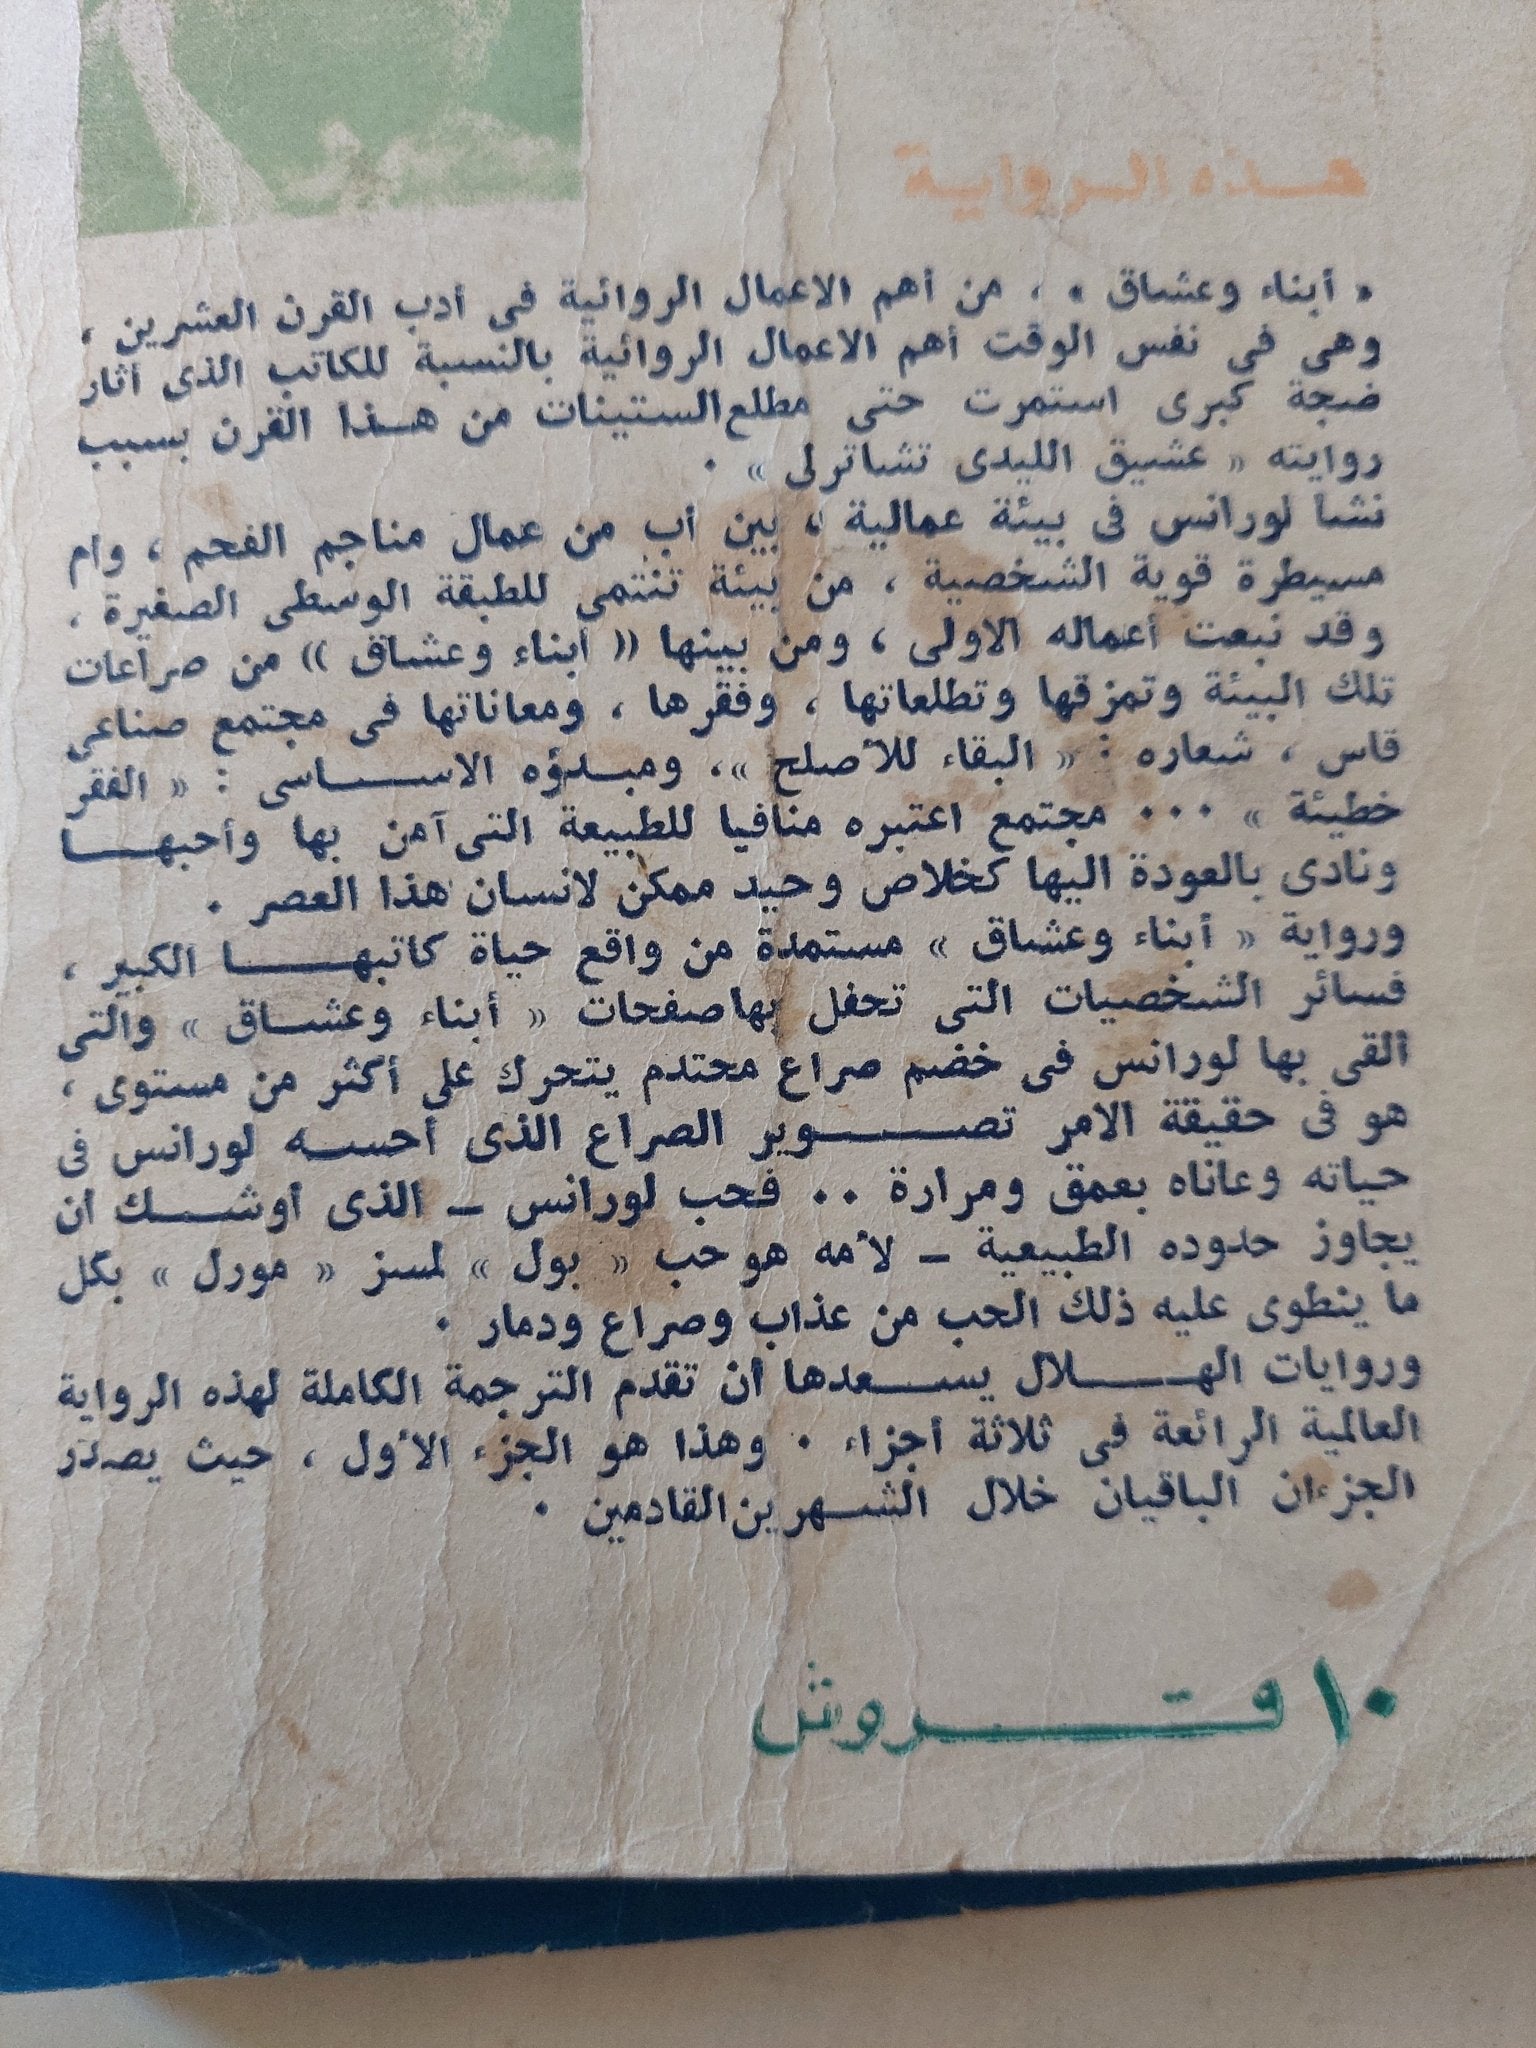 هذه الرواية
« أبناء وعشاق » ، من أهم الاعمال الروائية فى أدب القرن العشرين ،
وهى فى نفس الوقت أهم الاعمال الروائية بالنسبة للكاتب الذى أثار
ضجة كبرى استمرت حتى مطلع الستينات من هـذا القرن بسبب
روايته « عشيق الليدى تشاترلى » .
نشأ لورانس فى بيئة عمالية ، بين أب من عمال مناجم الفحم ، وام
مسيطرة قوية الشخصية ، من بيئة تنتمى للطبقة الوسطى الصغيرة ،
وقد نبعت أعماله الاولى ، ومن بينها (( أبناء وعشاق )) من صراعات
تلك البيئة وتمزقها وتطلعاتها ، وفقرها ، ومعاناتها فى مجتمع صناعى
قاس ، شعاره : « البقاء للأصلح » ، ومبـدؤه الاســاسى : « الفقر
خطيئة » ٠٠٠ مجتمع اعتبره منافيا للطبيعة التى آمن بها وأحبهــا
ونادى بالعودة اليها كخلاص وحيد ممكن لانسان هذا العصر .
ورواية « أبناء وعشاق » مستمدة من واقع حياة كاتبهـــا الكبير ،
فسائر الشخصيات التى تحفل بها صفحات « أبناء وعشــاق » والتى
ألقى بها لورانس فى خضم صراع محتدم يتحرك على أكثر من مستوى ،
هو فى حقيقة الامر تصـــوير الصراع الذى أحســه لورانس فى
حياته وعاناه بعمق ومرارة .. فحب لورانس ــ الذى أوشــك ان
يجاوز حدوده الطبيعية ــ لأمه هو حب « بول » لمسز « مورل » بكل
ما ينطوى عليه ذلك الحب من عذاب وصراع ودمار .
وروايات الهــلال يســعدها أن تقدم الترجمة الكاملة لهذه الرواية
العالمية الرائعة فى ثلاثة أجزاء . وهذا هو الجزء الأول ، حيث يصدر
الجزءان الباقيان خلال الشهرين القادمين .
١٠ قـــروش